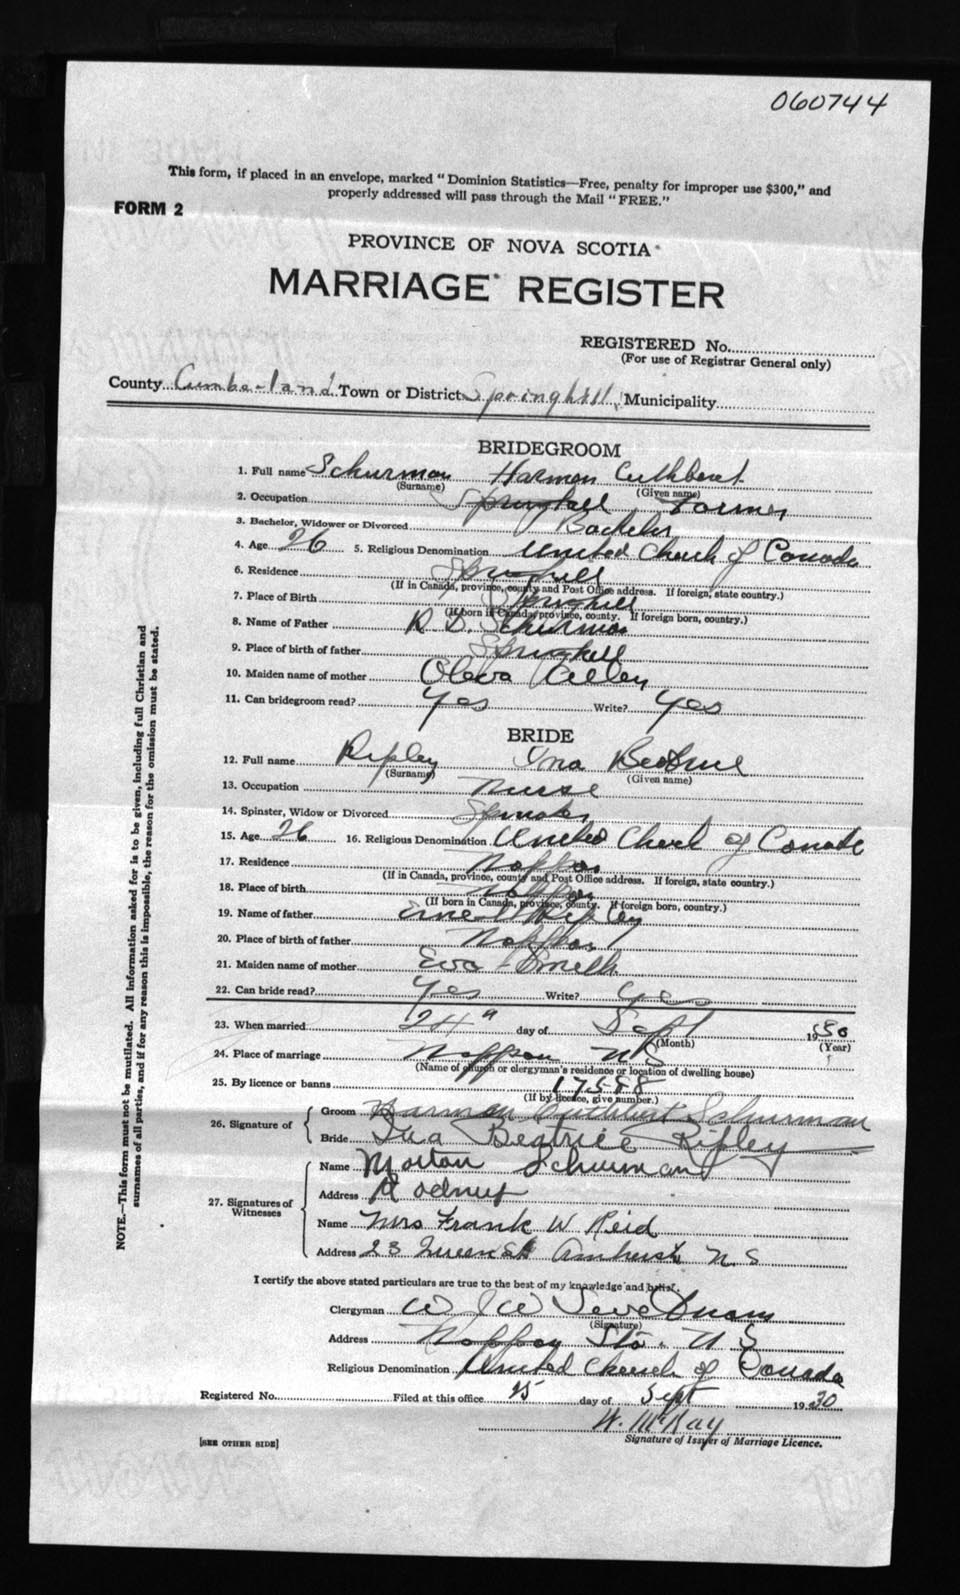 060744
This form, if placed in an envelope, marked "Dominion Statistics—Free, penalty for improper use $300," and
properly addressed will pass through the Mail "FREE."
FORM 2
PROVINCE OF NOVA SCOTIA
MARRIAGE REGISTER
REGISTERED No.
(For use of Registrar General only)
County Cumberland Town or District Springhill Municipality
BRIDEGROOM
1. Full name Schurman Harmon Cuthbert
(Surname) (Given name)
2. Occupation Springhill Farmer
3. Bachelor, Widower or Divorced Bachelor
4. Age 26 5. Religious Denomination United Church of Canada
6. Residence Springhill
(If in Canada, province, county and Post Office address. If foreign, state country.)
7. Place of Birth Springhill
(If born in Canada, province, county. If foreign born, country.)
8. Name of Father R D. Schurman
9. Place of birth of father Springhill
10. Maiden name of mother
11. Can bridegroom read? Yes Write? Yes
BRIDE
12. Full name Ripley Ina Beatrice
(Surname) (Given name)
13. Occupation Nurse
14. Spinster, Widow or Divorced Spinster
15. Age 26 16. Religious Denomination United Church of Canada
17. Residence Nappan
(If in Canada, province, county and Post Office address. If foreign, state country.)
18. Place of birth Nappan
(If born in Canada, province, county. If foreign born, country.)
19. Name of father Ripley
20. Place of birth of father Nappan
21. Maiden name of mother Eva Smith
22. Can bride read? Yes Write? Yes
23. When married 24" day of Sept 1930
(Month) (Year)
24. Place of marriage Nappan N S
(Name of church or clergyman's residence or location of dwelling house)
25. By licence or banns 17598
(If by licence, give number.)
26. Signature of Groom Harmon Cuthbert Schurman
Bride Ina Beatrice Ripley
27. Signatures of Witnesses Name Morton Schurman
Address Rodney
Name Mrs Frank W Reid
Address 23 Queen St Amherst N. S
I certify the above stated particulars are true to the best of my knowledge and belief.
Clergyman W J W
(Signature)
Address Nappan Sta. N S
Religious Denomination United Church of Canada
Registered No. Filed at this office 25 day of Sept 1930
W. McKay
Signature of Issuer of Marriage Licence.
[SEE OTHER SIDE]
NOTE.—This form must not be mutilated. All information asked for is to be given, including full Christian and
surnames of all parties, and if for any reason this is impossible, the reason for the omission must be stated.